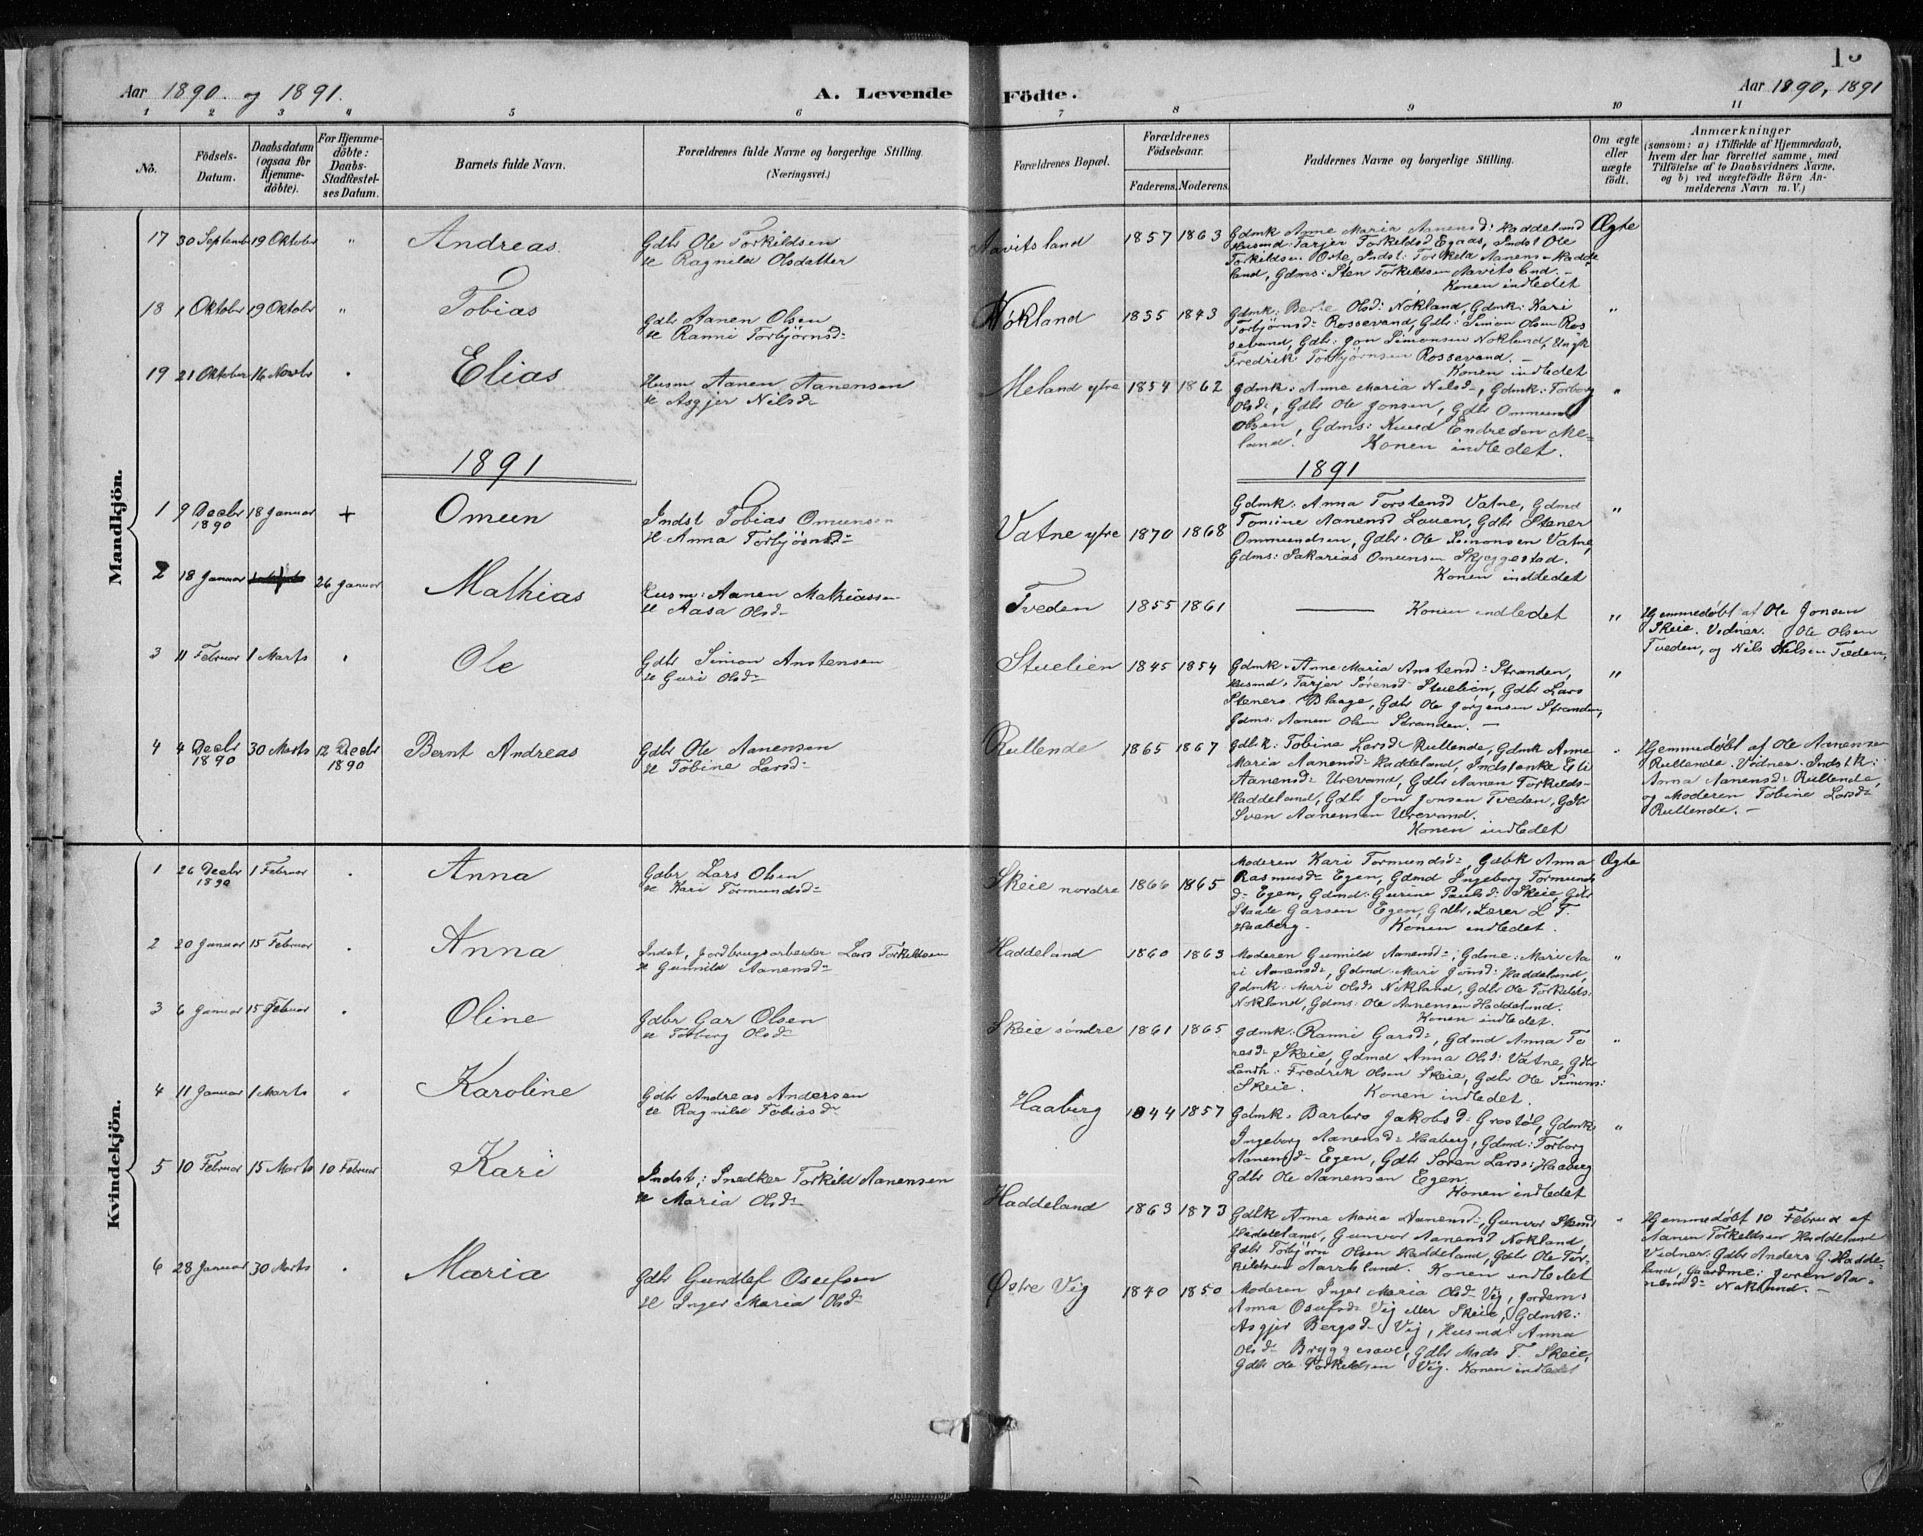 Aar 1890 og 1891.
A. Levende
1 2 3 4 5 6
No.
Födsels-
Datum.
Daabsdatum
(ogsaa for
Hjemme-
döbte).
For Hjemme-
döbte:
Daabs-
Stadfæstel-
ses Datum.
Barnets fulde Navn.
Forældrenes fulde Navne og borgerlige Stilling.
(Næringsvei.)
Mandkjön.
17 30 Septembr 19 Oktober " Andreas Gdbr Ole Torkildsen
H Ragnild Olsdatter
18 1 Oktober 19 Oktober " Tobias Gdbr Aanen Olsen
H Ranni Torbjørnsd:
19 21 Oktober 16 Novbr " Elias Husm Aanen Aanensen
H Asgjer Nilsd:
1891
1 9 Decbr 1890 18 Januar + Omun Indst Tobias Omunsen
H Anna Torbjørnsd:
2 18 Januar 26 Januar Mathias Husm: Aanen Mathiassen
H Aasa Olsd:
3 11 Februar 1 Marts " Ole Gdbr Simon Anstensen
H Guri Olsd:
4 4 Decbr 1890 30 Marts 12 Decbr 1890 Bernt Andreas Gdbr Ole Aanensen
H Tobine Larsd:
Kvindekjön.
1 26 Decbr 1890 1 Februar " Anna Gdbr Lars Olsen
H Kari Tormundsd:
2 20 Januar 15 Februar " Anna Indst, Jordbrugsarbeider Lars Torkildsen
H Gunnild Aanensd:
3 6 Januar 15 Februar " Oline Gdbr Gar Olsen
H Torborg Olsd:
4 11 Januar 1 Marts " Karoline Gdbr Andreas Andersen
H Ragnild Tobiasd:
5 10 Februar 15 Marts 10 Februar Kari Indst; Snedker Torkild Aanensen
H Maria Olsd:
6 28 Januar 30 Marts " Maria Gdbr Gundlef Osufsen
H Inger Maria Olsd:
Födte.
Aar 1890, 1891
7 8 9 10 11
Forældrenes Bopæl.
Forældrenes
Födselsaar.
Faderens. Moderens.
Faddernes Navne og borgerlige Stilling.
Om ægte
eller
uægte
födt.
Anmærkninger
(saasom: a) i Tilfælde af Hjemmedaab,
hvem der har forrettet samme, med
Tilföielse af to Daabsvidners Navne,
og b) ved uægtefödte Börn An-
melderens Navn m. V.)
Aavitsland 1857 1863 Gdmk Anne Maria Aanensd: Haddeland Ægte
Husmd Tarjer Torkildsd Egaas, Indst Ole
Torkildsen Øste, Indst: Torkild Aanensen Hadde
land, Gdms: Sten Torkildsen Aavitsland. –
Konen indledet
Nökland 1835 1843 Gdmk: Berte Olsd: Nökland, Gdmk: Kari "
Torbjørnsd: Rossevand, Gdbr: Simon Olsen Ros
sevand, Gdbr: Jon Simonsen Nökland, Ungk
Fredrik Torbjørnsen Rossevand. –
Konen indledet
Meland ytre 1854 1862 Gdmk: Anne Maria Nilsd:, Gdmk: Torborg "
Olsd:, Gdbr Ole Jonsen, Gdbr Ommund
Olsen, Gdms: Knud Endresen Me=
land. Konen indledet.
1891
Vatne ytre 1870 1868 Gdmk: Anna Torstensd Vatne, Gdmd "
Tomine Aanensd Lauen, Gdbr Stener
Ommundsen, Gdbr: Ole Simonsen Vatne,
Gdms: Sakarias Omunsen Skjeggestad.
Konen indledet
Tveden 1855 1861 — Konen indledet " Hjemmedøbt af Ole Jonsen
Skeie. Vidner. Ole Olsen
Tveden, og Nils Nilsen Tveden.
Stuelien 1845 1854 Gdmk: Anne Maria Anstensd: Stranden, "
Husmd: Tarjer Sörensd Stuelien, Gdbr Lars
Steners Blaage, Gdbr Ole Jørgensen Stranden,
Gdms: Aanen Olsen Stranden. –
Rullende 1865 1867 Gdbk: Tobine Larsd: Rullende, Gdmk Anne "
Maria Aanensd: Haddeland, Indstenke Eli
Aanensd: Urevand, Gdbr Aanen Torkilds-
Haddeland, Gdbr Jon Jonsen Tveden, Gdbr
Sven Aanensen Urevand.
Konen indledet
Hjemmedøbt af Ole Aanensen
Rullende. Vidner. Indstk:
Anna Aanensd: Rullende,
og Moderen Tobine Larsd:
Rullende. –
Skeie nordre 1866 1865 Moderen Kari Tormundsd:, Gdbk Anna Ægte
Rasmusd: Egen, Gdmd Ingeborg Tormunds
d: Egen, Gdmd: Gurine Paulsd: Skeie, Gdbr
Staale Garsen Egen, Gdbr. Lærer L. T.
Haaberg. Konen indledet.
Haddeland 1860 1863 Moderen Gunnild Aanensd:, Gdme: Mari Aa "
ni Aanensd:, Gdmd: Mari Jonsd: Haddeland,
Gdmk: Mari Olsd: Nökland, Gdbr Ole Torkilds:
Nökland, Gdms: Ole Aanensen Haddeland.
Konen indledet.
Skeie söndre 1861 1865 Gdmk: Ranni Garsd:, Gdmd Anna To "
resd: Skeie, Gdmd Anna Olsd: Vatne, Gdbr
Landh: Fredrik Olsen Skeie, Gdbr Ole Simons:
Skeie. Konen indledet.
Haaberg 1844 1857 Gdmk: Barbro Jakobsd: Grostøl, Gdmk: "
Ingeborg Aanensd: Haaberg, Gdmd: Torborg
Aanensd: Egen, Gdbr Søren Larss: Haaberg
Gdbr Ole Aanensen Egen.
Konen indledet
Haddeland 1863 1873 Gdbk Anne Maria Aanensd:, Gunvor "
Haddeland, Gunvor Aanensd Nökland,
Gdbr Torbjörn Olsen Haddeland, Gdbr Ole Tor-
kildsen Aavitsland. Konen indledet
Hjemmedøbt 10 Februar af
Aanen Torkildsen Haddeland
Vidner: Gdbr Anders G. Hadde-
land, Gaardme: Joren Aa-
nensd: Nökland. –
Østre Vig 1840 1850 Moderen Inger Maria Olsd: Vig, Jordem:
Anna Osufsd: Vig eller Skeie, Gdmk:
Asgjer Bergsd: Vig, Husmd: Anna
Olsd: Bryggesaae, Gdbr Mads T. Skeie,
Gdbr Ole Torkildsen Vig. Konen indledet